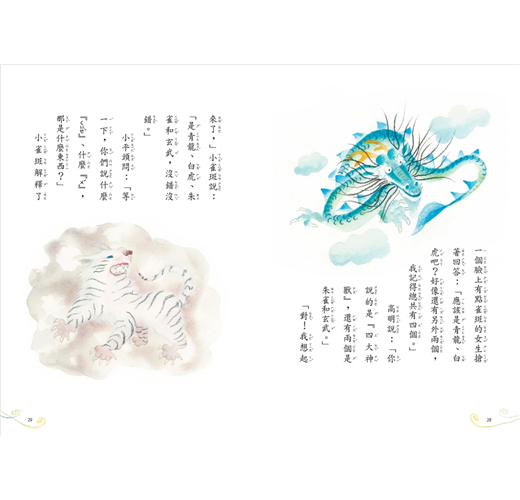 一個臉上有點雀斑的女生搶
著回答：「應該是青龍、白
虎吧？好像還有另外兩個，
我記得總共有四個。」
高明說：「你
說的是『四大神
獸』，還有兩個是
朱雀和玄武。」
「對！我想起
28
來了，」小雀斑說：
「是青龍、白虎、朱
雀和玄武，沒錯沒
錯。」
小平頭問：「等
一下，你們說什麼
、什麼
那是什麼東西？」
小雀斑解釋了
29